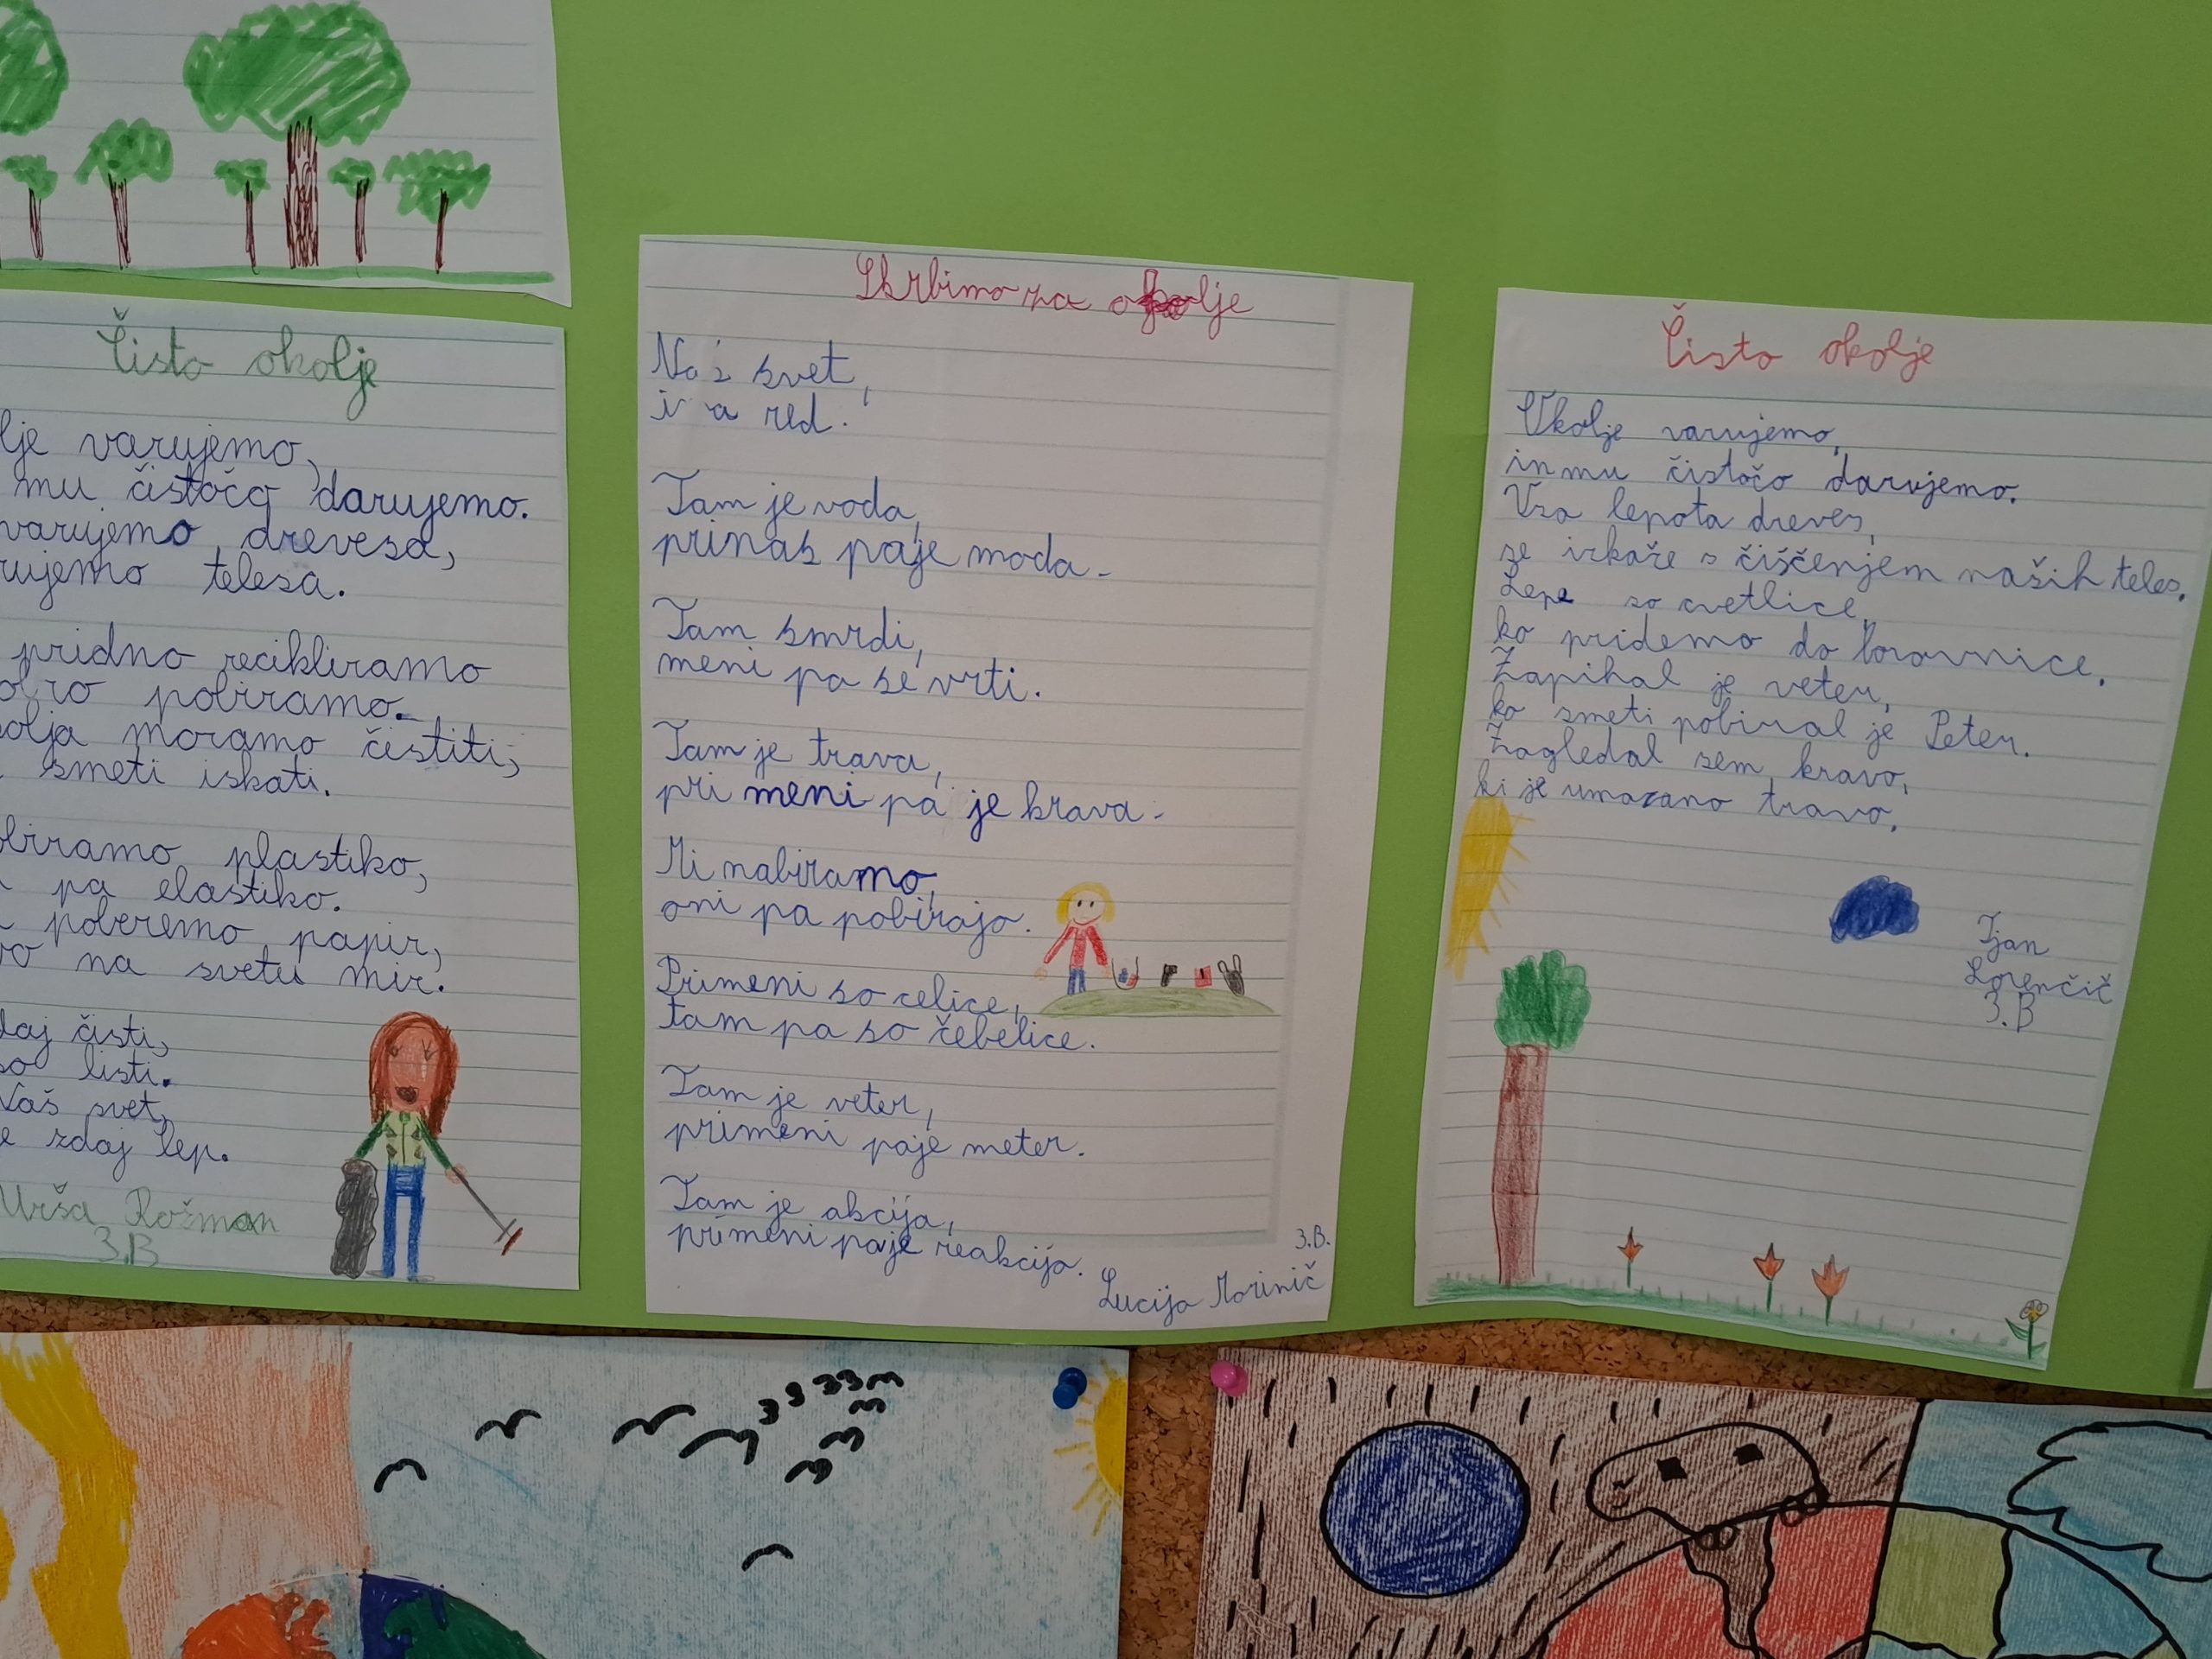 Čisto okolje
lje varujemo,
mu čistočo darujemo.
varujemo drevesa,
rujemo telesa.
pridno recikliramo
pobiramo.
olja moramo čistiti,
smeti iskati.
biramo plastiko,
pa elastiko.
poberemo papir,
na svetu mir.
daj čisti,
so listi.
Naš svet,
e zdaj lep.
Urša Rožman
3.B
Skrbimo za okolje
Naš svet,
i a red.
Tam je voda,
prinas paje moda.
Tam smrdi,
meni pa se vrti.
Tam je trava,
pri meni pa je krava.
Mi nabiramo,
oni pa pobirajo.
Primeni so celice,
tam pa so čebelice.
Tam je veter,
primeni paje meter.
Tam je akcija,
primeni paje reakcija.
3.B.
Lucija Marinič
Čisto okolje
Okolje varujemo,
in mu čistočo darujemo.
Vsa lepota dreves,
se izkaže s čiščenjem naših teles.
Lepe so cvetlice,
ko pridemo do borovnice.
Zapihal je veter,
ko smeti pobiral je Peter.
Zagledal sem kravo,
ki je umazano travo.
Tjan
Lorenčič
3.B